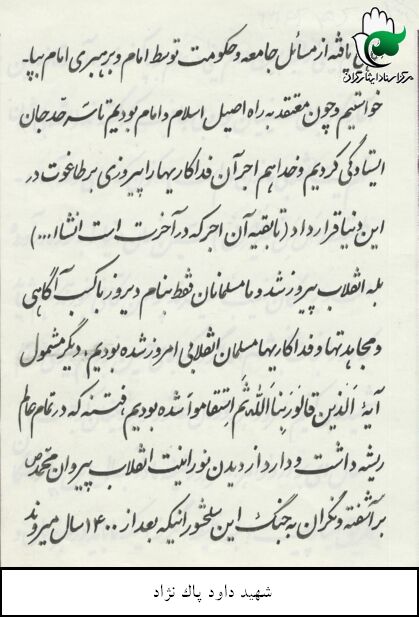 مرکز اسناد ایثارگران
یافته از مسائل جامعه و حکومت توسط امام و برهبری امام بپا
خواستیم و چون معتقد به راه اصیل اسلام و امام بودیم تا سرحد جان
ایستادگی کردیم و خدا هم اجر آن فداکاریها را پیروزی بر طاغوت در
این دنیا قرار داد (تا بقیه آن اجر که در آخرت است انشاا...)
بله انقلاب پیروز شد و ما مسلمانان فقط بنام دیروز با کسب آگاهی
و مجاهدتها و فداکاریها مسلمان انقلابی امروز شده بودیم، دیگر مشمول
آیهٔ اَلَّذین قالُو رَبُّنا اَللهُ ثُمَّ اِستَقامُوا شده بودیم، فتنه که در تمام عالم
ریشه داشت و دارد از دیدن نورانیت انقلاب پیروان محمد ص
برآشفته و نگران به جنگ این سلحشورانیکه بعد از ۱۴۰۰ سال میروند
شهید داود پاك نژاد